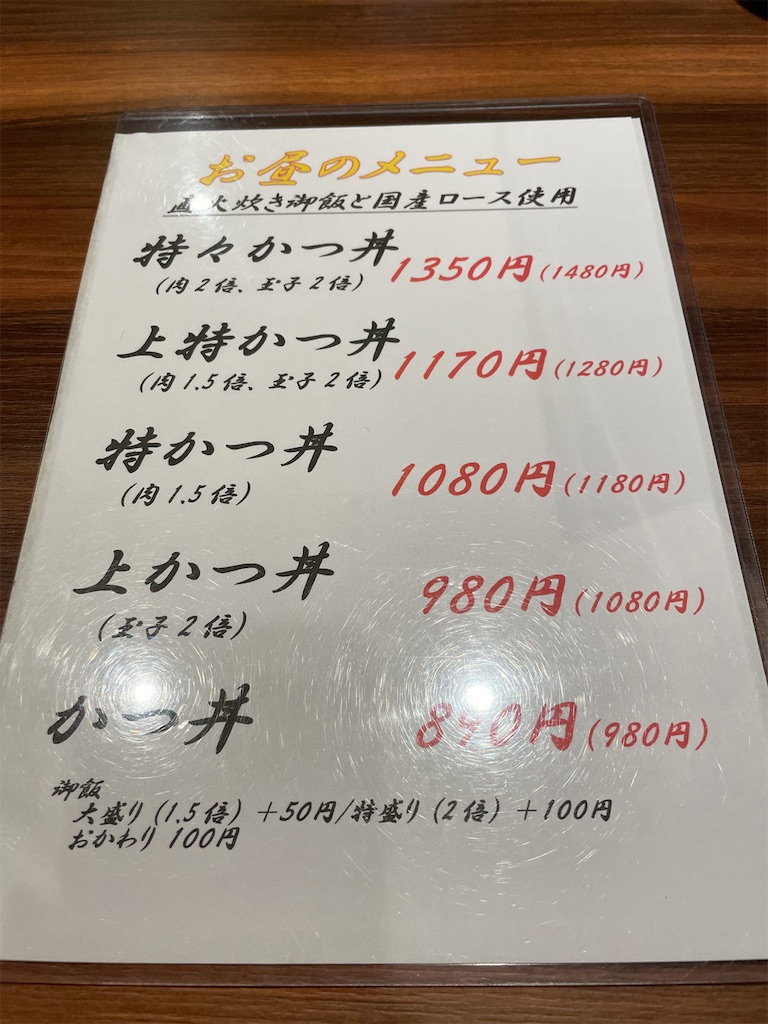 お昼のメニュー
直火炊き御飯と国産ロース使用
特々かつ丼 1350円(1480円)
(肉2倍、玉子2倍)
上特かつ丼 1170円(1280円)
(肉1.5倍、玉子2倍)
特かつ丼 1080円(1180円)
(肉1.5倍)
上かつ丼 980円(1080円)
(玉子2倍)
かつ丼 890円(980円)
御飯
大盛り(1.5倍) +50円/特盛り(2倍) +100円
おかわり 100円